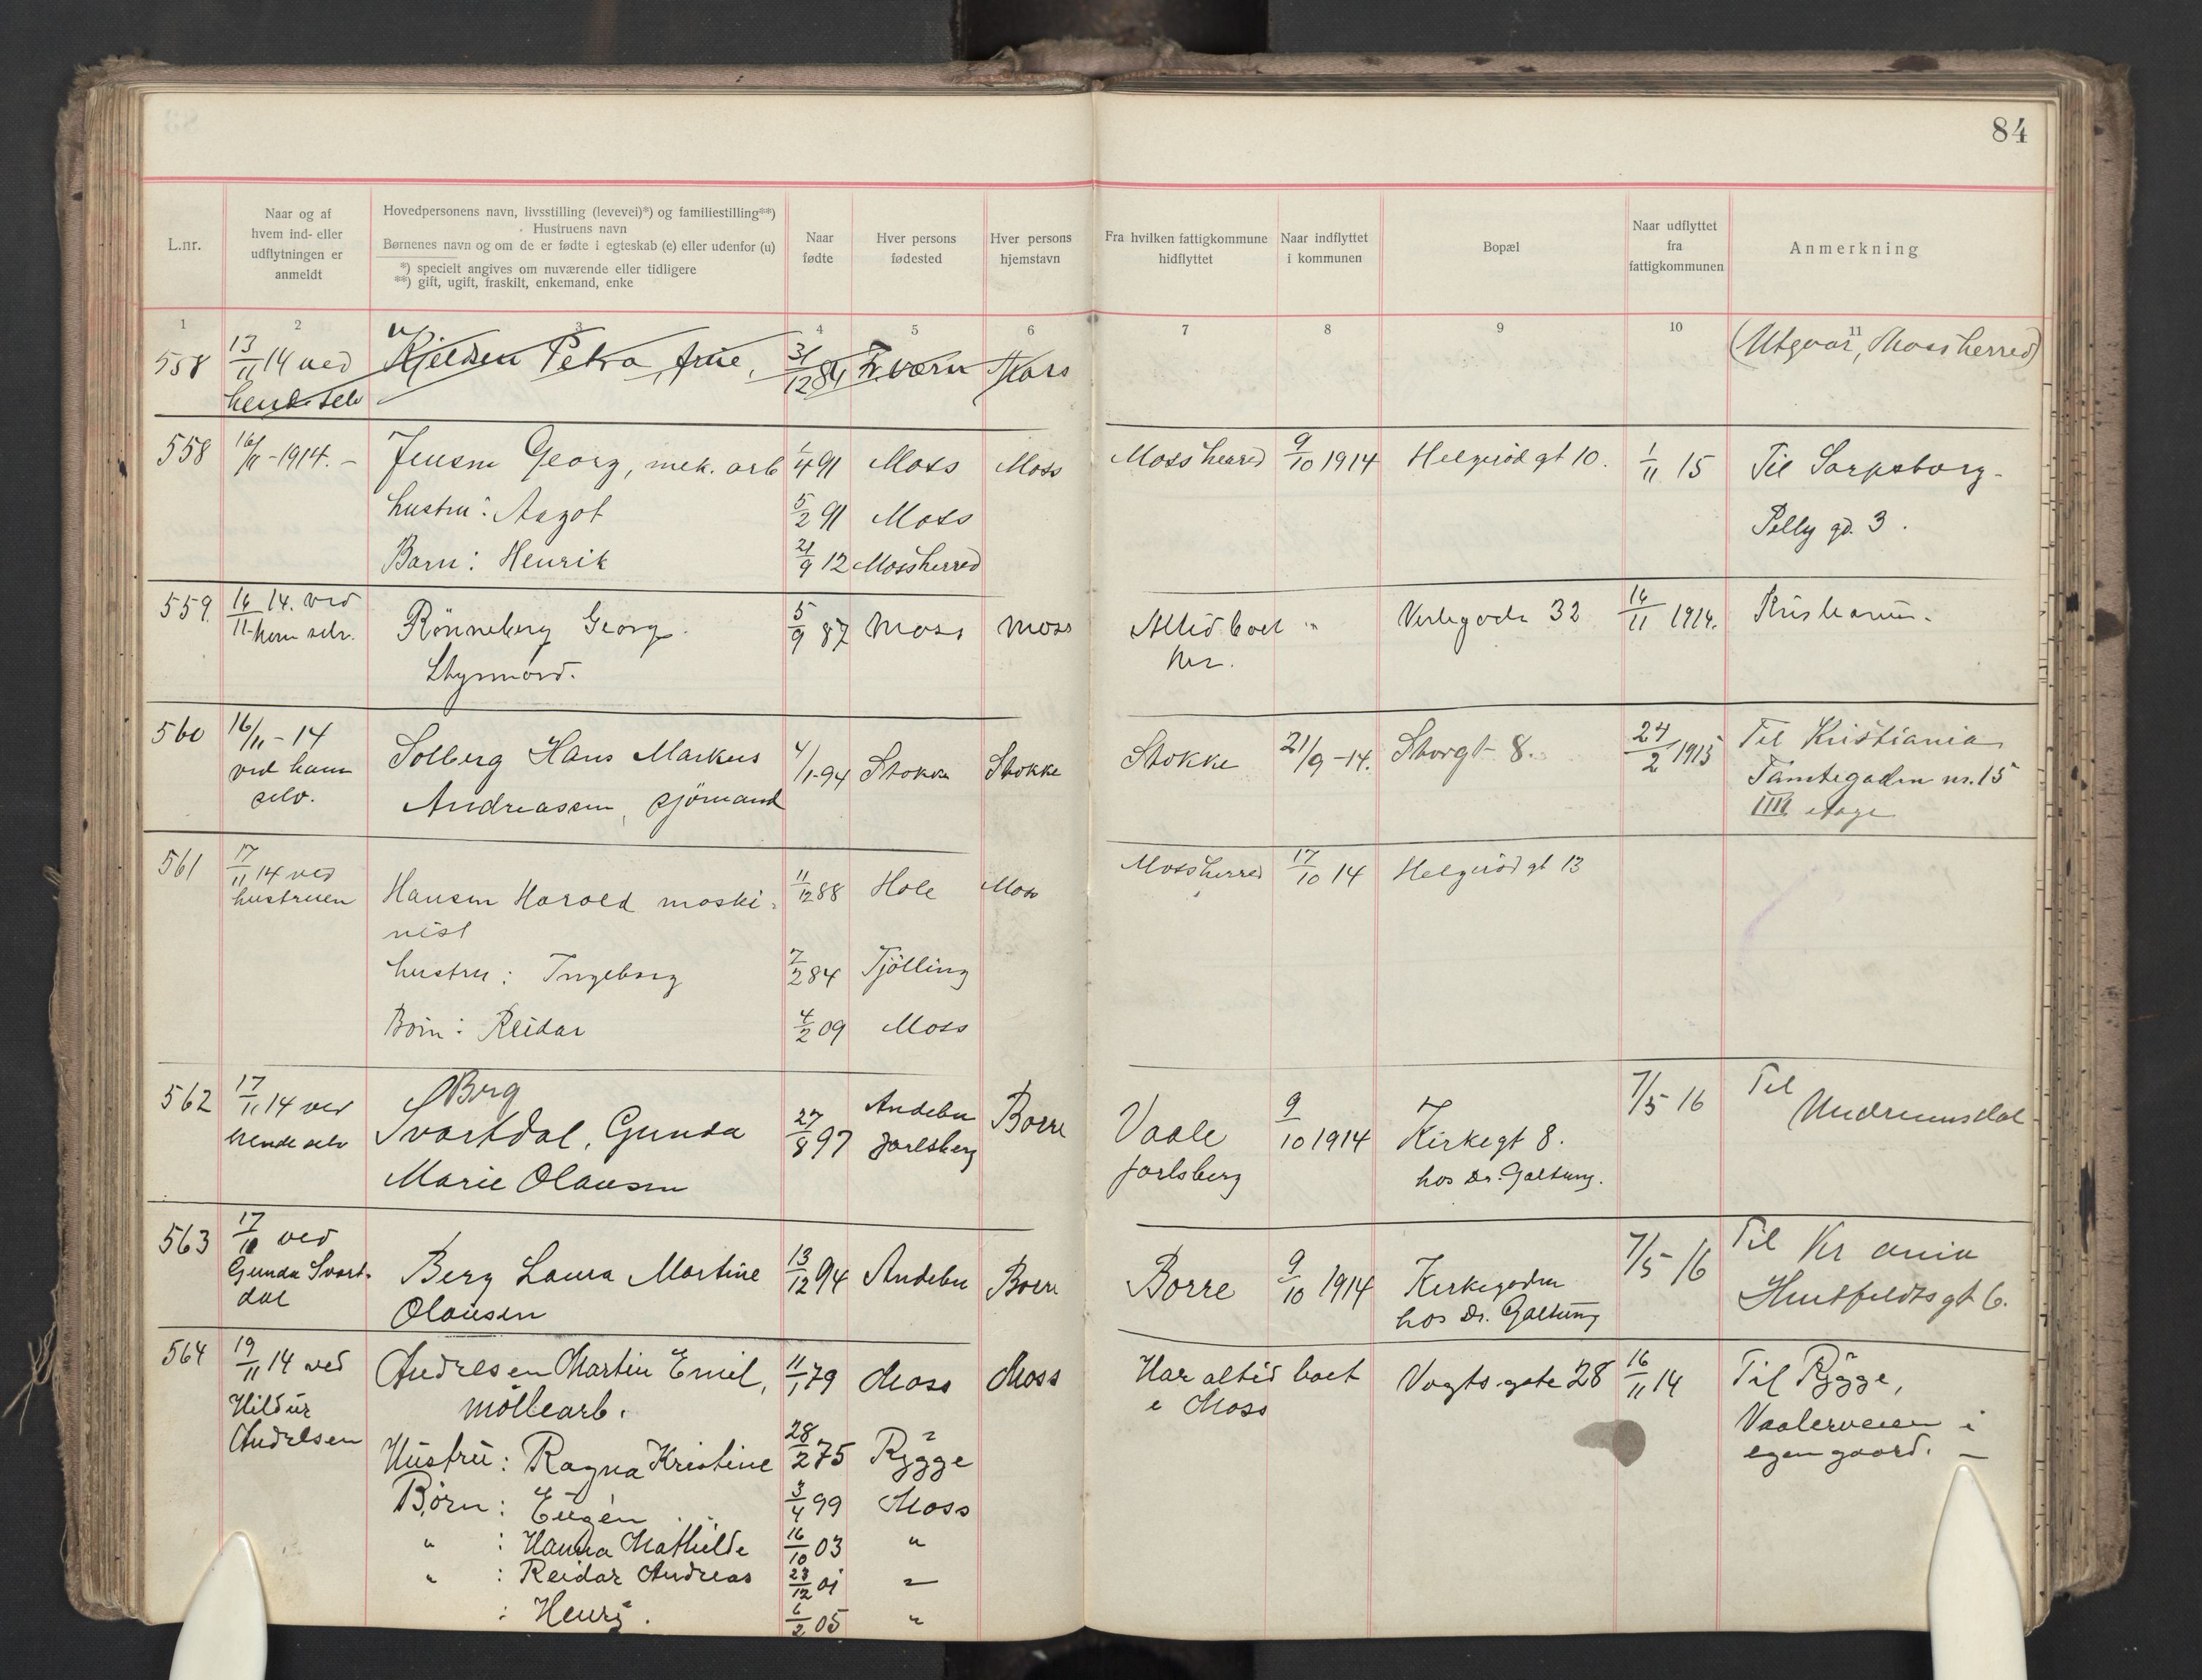 84
L.nr.
Naar og af
hvem ind- eller
udflytningen er
anmeldt
Hovedpersonens navn, livsstilling (levevei)*) og familiestilling**)
Hustruens navn
Børnenes navn og om de er fødte i egteskab (e) eller udenfor (u)
*) specielt angives om nuværende eller tidligere
**) gift, ugift, fraskilt, enkemand, enke
Naar
fødte
Hver persons
fødested
Hver persons
hjemstavn
Fra hvilken fattigkommune
hidflyttet
Naar indflyttet
i kommunen
Bopæl
Naar udflyttet
fra
fattigkommunen
Anmerkning
1 2 3 4 5 6 7 8 9 10 11
558 13/11 14 ved Kjelsen Petra, frue, 31/12 84 Moss (Utgaar, Mossherred)
selv
558 16/11-1914.- Jensen Georg, mek. arb 1/4 91 Moss Moss Mossherred 9/10 1914 Helgerød gt 10. 1/11 15 Til Sarpsborg-
hustru: Aagot 5/2 91 Moss gd. 3.
Barn: Henrik 21/9 12 Mossherred
559. 16/11 14. ved Rönneberg Georg. 5/9 87 Moss Moss Altid boet " 32 16/11 1914. Kristiania.
ham selv. Styrmand. her.
560 16/11-14 Solberg Hans Markus 4/1-94 Stokke Stokke Stokke 21/9-14. Storgt 8. 24/2 1915 Til Kristiania
ved ham Andreassen, sjömand Tomtegaden nr. 15
selv. IIII etage
561 17/11 14 ved Hansen Harald maski- 11/12 88 Hole Moss Mossherred 17/10 14 Helgerød gt 13
hustruen nist
hustru: Ingeborg 7/2 84 Tjölling
Börn: Reidar 4/2 09 Moss
562 17/11 14 ved Berg
hende selv Svartdal, Gunda 27/8 97 Andebu Borre Vaale 9/10 1914 Kirkegt 8. 7/5 16 Til Undrumsdal
Marie Olausen Jarlsberg Jarlsberg hos Dr. Galtung.
563 17/11 ved Berg Laura Martine 13/12 94 Andebu Borre Borre 9/10 1914 Kirkegaden 7/5-16 Til Kr ania
Gunda Svart- Olausen hos Dr. Galtung Huitfeldtsgt 6.
dal
564 19/11 14 ved Andresen Martin Emil, 11/1 79 Moss Moss Har altid boet Vogtsgate 28 16/11 14 Til Rygge,
Hildur möllearb. i Moss Vaalerveien i
Andresen egen gaard. -
Hustru: Ragna Kristine 28/2 75 Rygge
Børn: Eugén 3/4 99 Moss
" : Hanna Mathilde 16/10 03 "
" : Reidar Andreas 23/12 01 "
: Henry. 6/2 05 "